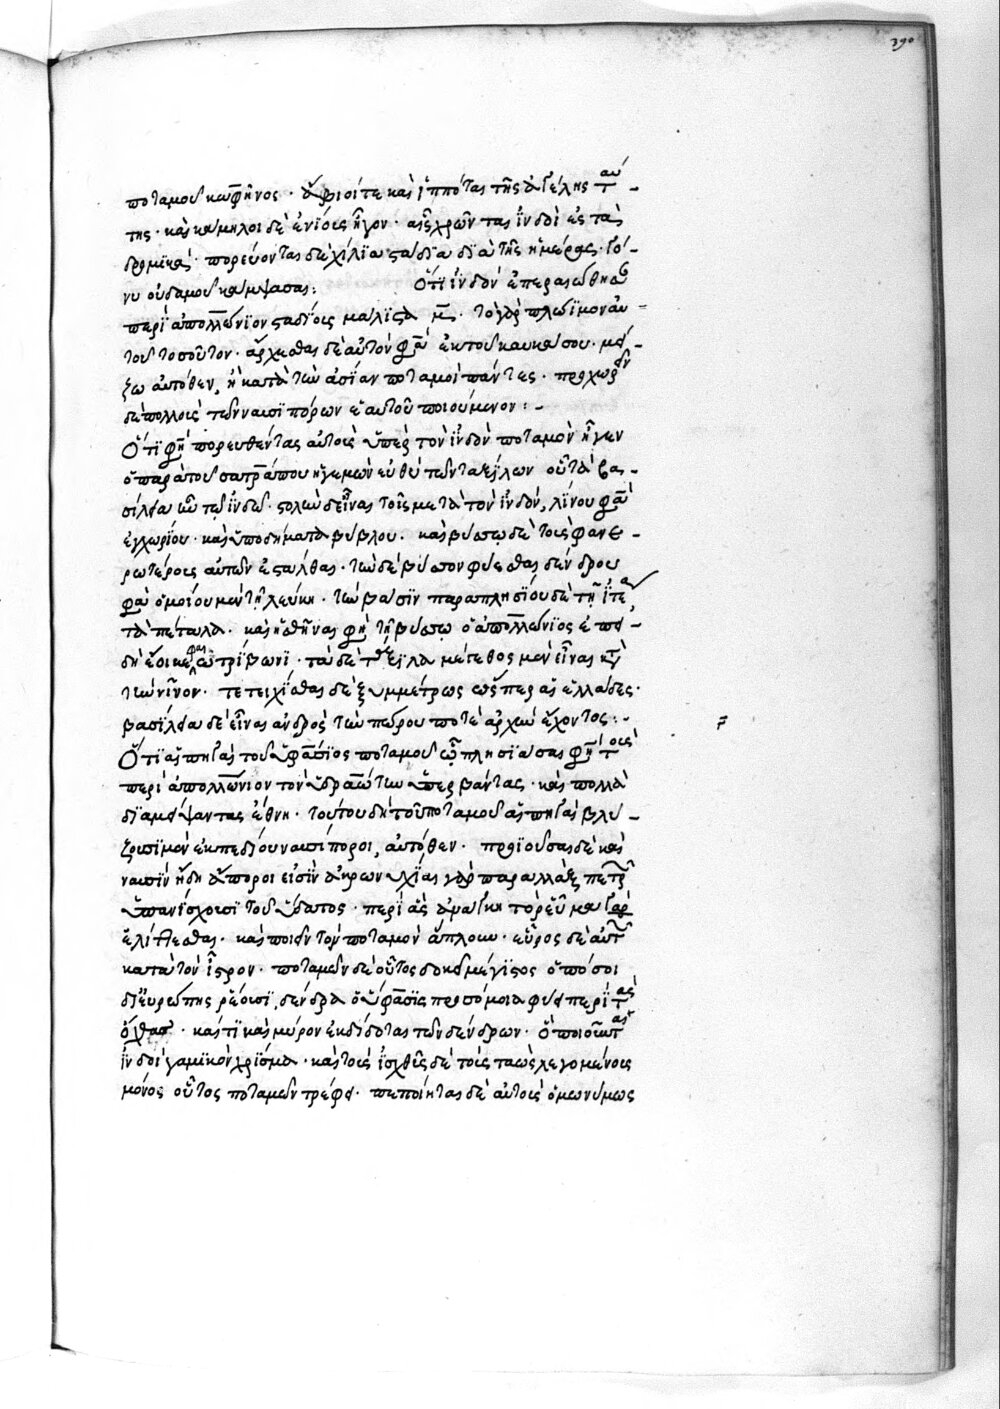 390
ποταμοῦ κωφῆνος · ἄβιοί τε καὶ ἱππόται τῆς ἀγέλης ταύ-
της · καὶ κάμηλοι δὲ ἐνίοις ἦγον · αἷς χρῶνται ἰνδοὶ ἐς τὰ
δρομικὰ · πορεύονται δὲ χίλια στάδια διὰ τῆς ἡμέρας · γό-
νυ οὐδαμοῦ κάμψασαι: Ὅτι ἰνδὸν ἐπεραιώθησαν
περὶ ἀπολλώνιον σταδίοις μάλιστα μ̅ · τὸ γὰρ πλώϊμον αὐ-
τοῦ τοσοῦτον · ἄρχεσθαι δὲ αὐτόν φασιν ἐκ τοῦ καυκάσου · μεί-
ζω αὐτόθεν, ἢ κατὰ τὴν ἀσίαν ποταμοὶ πάντες · προχωρεῖν
δὲ πολλοὺς τῶν ναυσιπόρων ἑαυτοῦ ποιούμενον:-
Ὅτι φησὶ πορευθέντας αὐτοὺς ὑπὲρ τὸν ἰνδὸν ποταμὸν ἦγεν
ὁ παρὰ τοῦ σατράπου ἡγεμὼν εὐθὺ τῶν ταξίλων οὗ τὰ βα-
σίλεια ἦν τῷ ἰνδῷ · στολὴν δὲ εἶναι τοῖς μετὰ τὸν ἰνδόν, λίνου φασὶ
ἐγχωρίου · καὶ ὑποδήματα βύβλου. καὶ βύσσῳ δὲ τοὺς φανε-
ρωτέρους αὐτῶν ἐστάλθαι · τὴν δὲ βύσσον φύεσθαι δένδρου
φασὶ ὁμοίου μὲν τῇ λεύκῃ · τὴν βάσιν παραπλησίου δὲ τῇ ἰτέᾳ
τὰ πέταλα · καὶ ἡσθῆναί φησι τῇ βύσσῳ ὁ ἀπολλώνιος ἐπει-
δὴ ἔοικε φαιῷ τρίβωνι · τὰ δὲ τάξιλα μέγεθος μὲν εἶναι κατὰ
τὴν νῖνον · τετειχίσθαι δὲ ξυμμέτρως ὥσπερ αἱ ἑλλάδες ·
βασίλεια δὲ εἶναι ἀνδρὸς τὴν πώρου ποτὲ ἀρχὴν ἔχοντος:-
Ὅτι αἱ πηγαὶ τοῦ ὑφάσιδος ποταμοῦ ᾧ πλησιάσαι φησὶ τοὺς
περὶ ἀπολλώνιον τὸν ὑδραώτην ὑπερβάντας · καὶ πολλὰ
διαμείψαντας ἔθνη · τούτου δὴ τοῦ ποταμοῦ αἱ πηγαὶ βλύ-
ζουσι μὲν ἐκ πεδίου ναυσίποροι, αὐτόθεν · προϊοῦσαι δὲ καὶ
ναυσὶν ἤδη ἄποροι εἰσὶν ἀκρωνυχίαι γὰρ παραλλὰξ πετρῶν
ὑπανίσχουσι τοῦ ὕδατος · περὶ ἃς ἀνάγκη τὸ ῥεῦμα γὰρ
ἑλίττεσθαι · καὶ ποιεῖν τὸν ποταμὸν ἄπλουν · εὖρος δὲ αὐτῷ
κατὰ τὸν ἴστρον · ποταμῶν δὲ οὗτος δοκεῖ μέγιστος ὁπόσοι
δι εὐρώπης ῥέουσι, δένδρα ὁ ὕφασις προσόμοια φύει περὶ τὰς
ὄχθας · καί τι καὶ μύρον ἐκδίδοται τῶν δένδρων · ὃ ποιοῦνται
ἰνδοὶ γαμικὸν χρίσμα · καὶ τοὺς ἰχθῦς δὲ τοὺς ταὼς λεγομένους
μόνος οὗτος ποταμῶν τρέφει · πεποίηται δὲ αὐτοὺς ὁμωνύμως